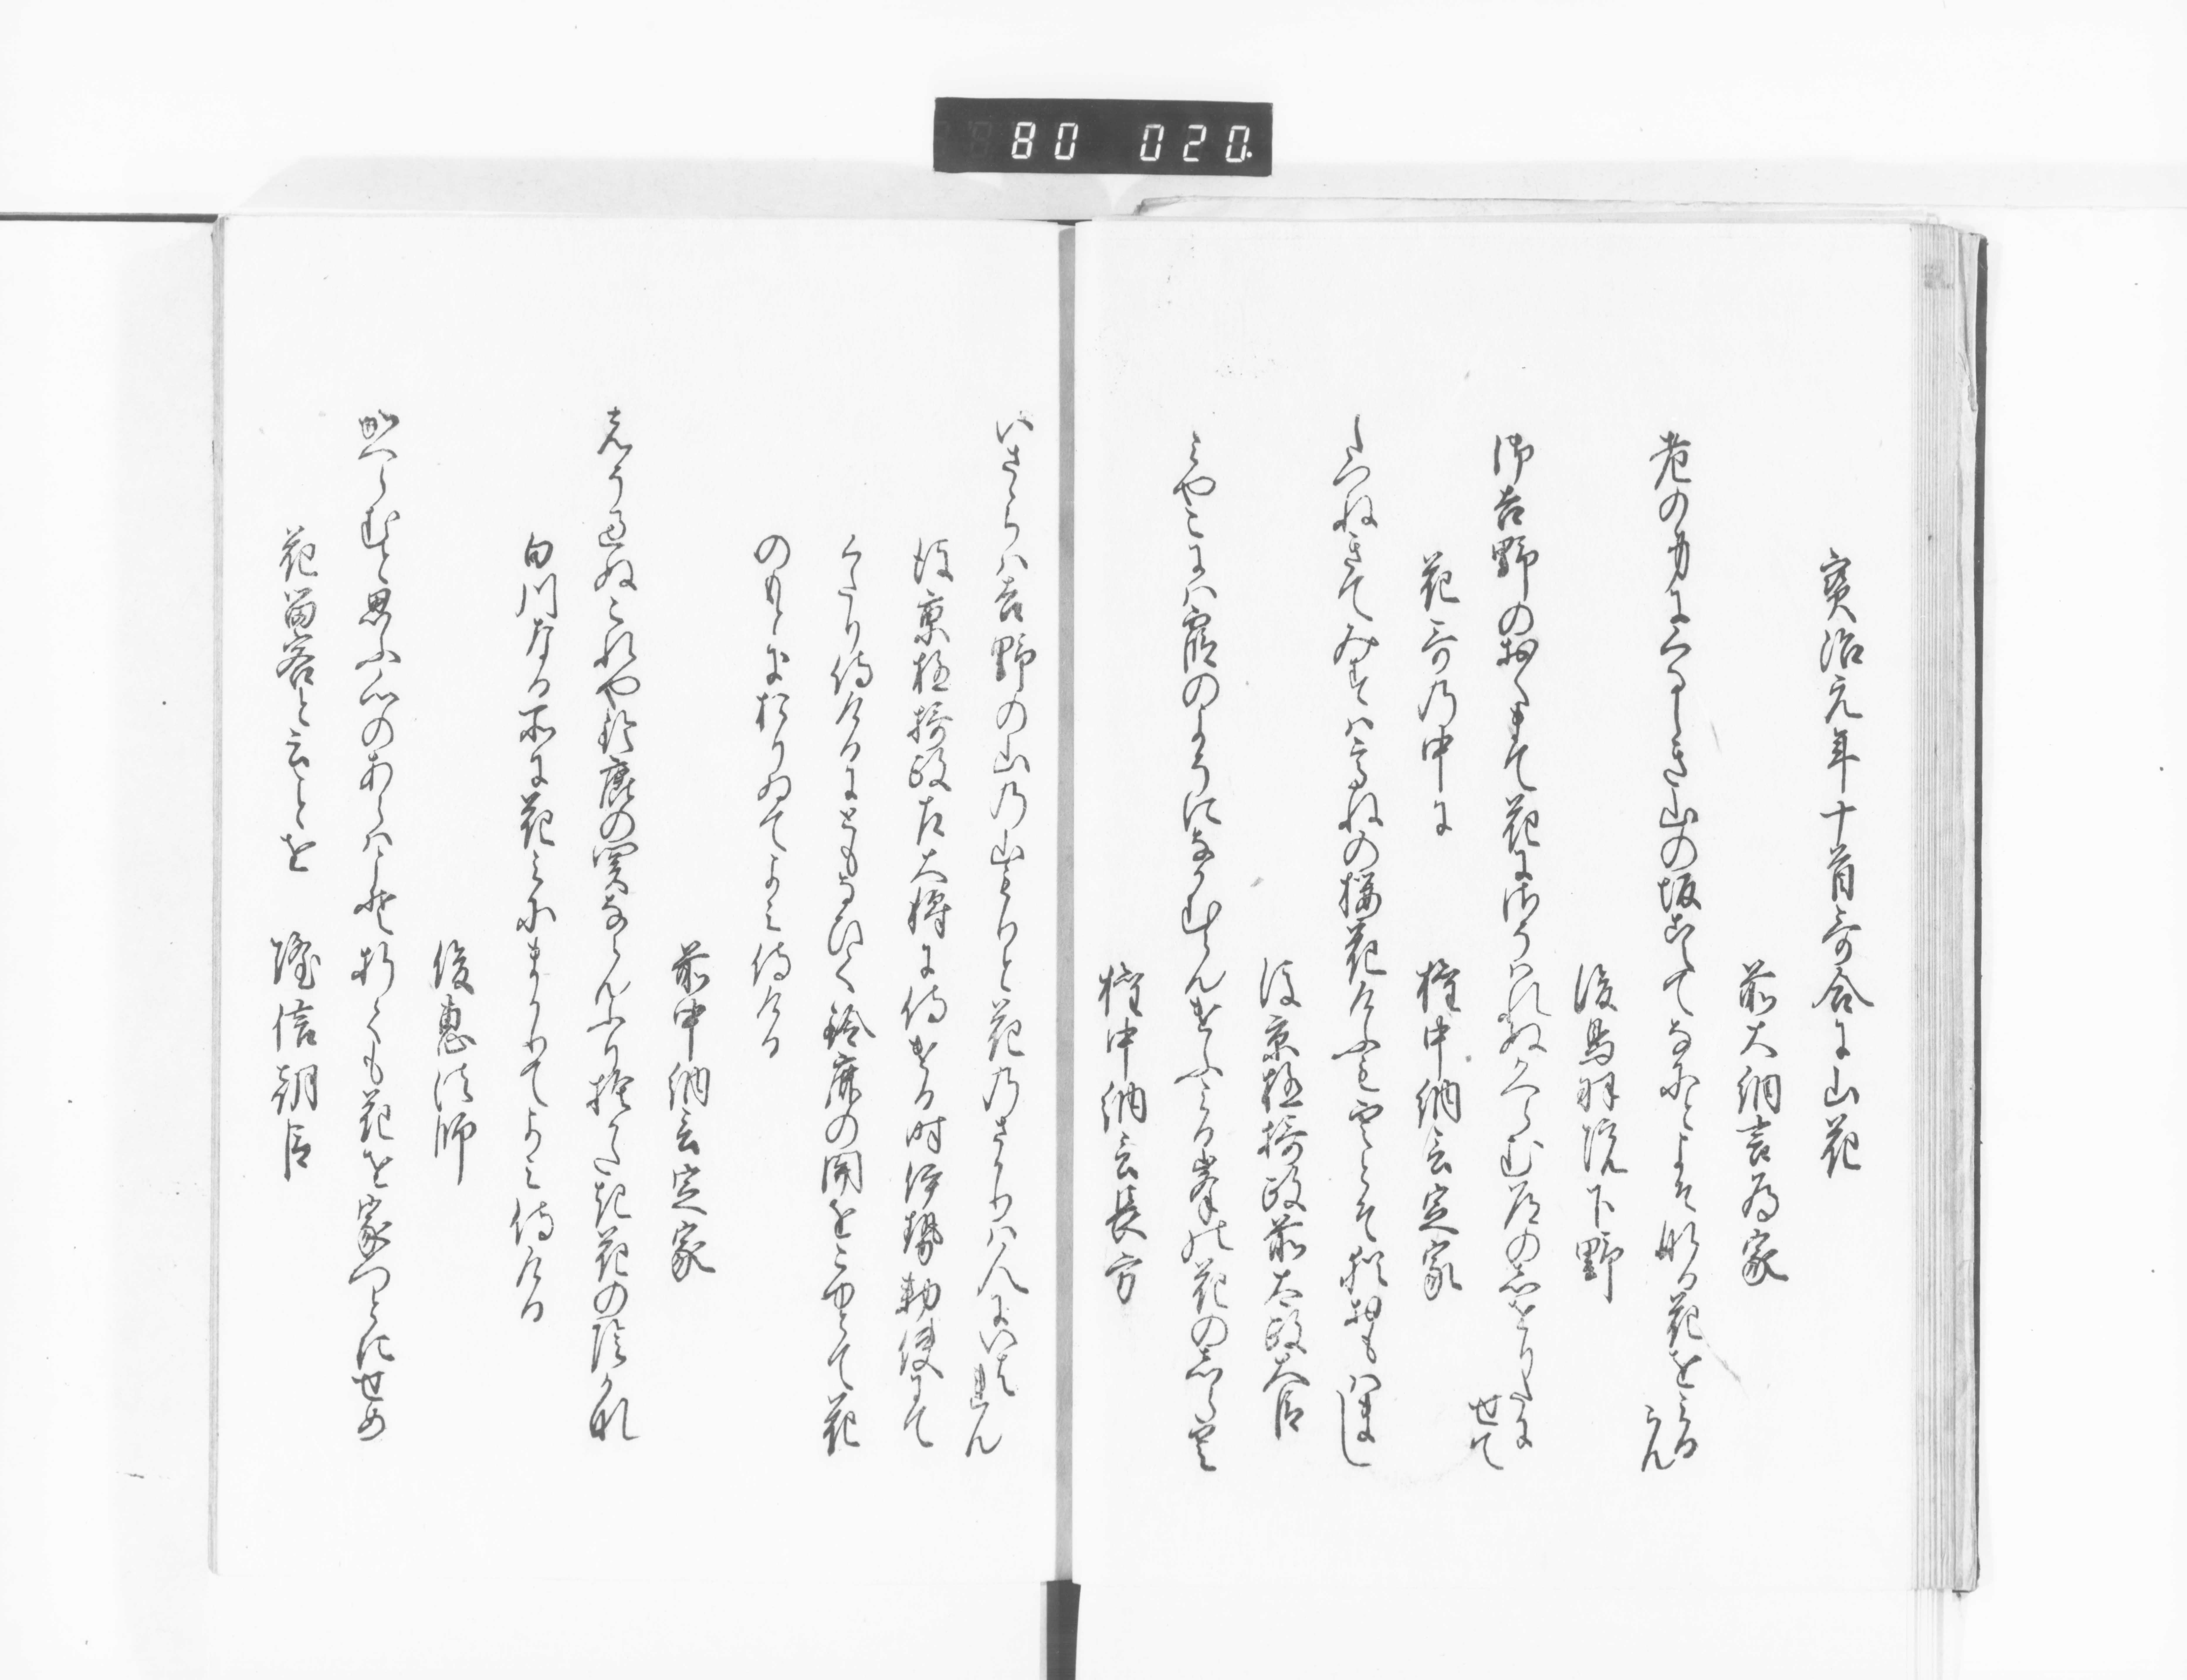 80 020
寳治元年十首哥合に山花
前大納言為家
老の身にくるしき山の坂こえてなにとよそなる花をみるらん
後鳥羽院下野
御吉野のおくまて花にさそはれぬかへらむ道のしをりたにせて
花哥の中に
権中納言定家
たつねきてみすは高ねの桜花けふも雲とそ猶おもはまし
後京極摂政前太政大臣
みやこには霞のよそになかむらんけふみる峯の花のしら雲
権中納言長方
いさゝらは吉野の山の山もりと花のさかりは人にいはれん
後京極摂政左大将に侍ける時伊勢勅使にて
くたり侍けるにともなひて鈴鹿の関をこゆとて花
のもとにおりゐてよみ侍ける
前中納言定家
えそ過ぬこれや鈴鹿の関ならんふり捨かたき花の陰かな
白川なる所に花みにまかりてよみ侍ける
俊恵法師
かへらむと思ふ心のあらはこそ折ても花を家つとにせめ
花留客と云ことを
隆信朝臣